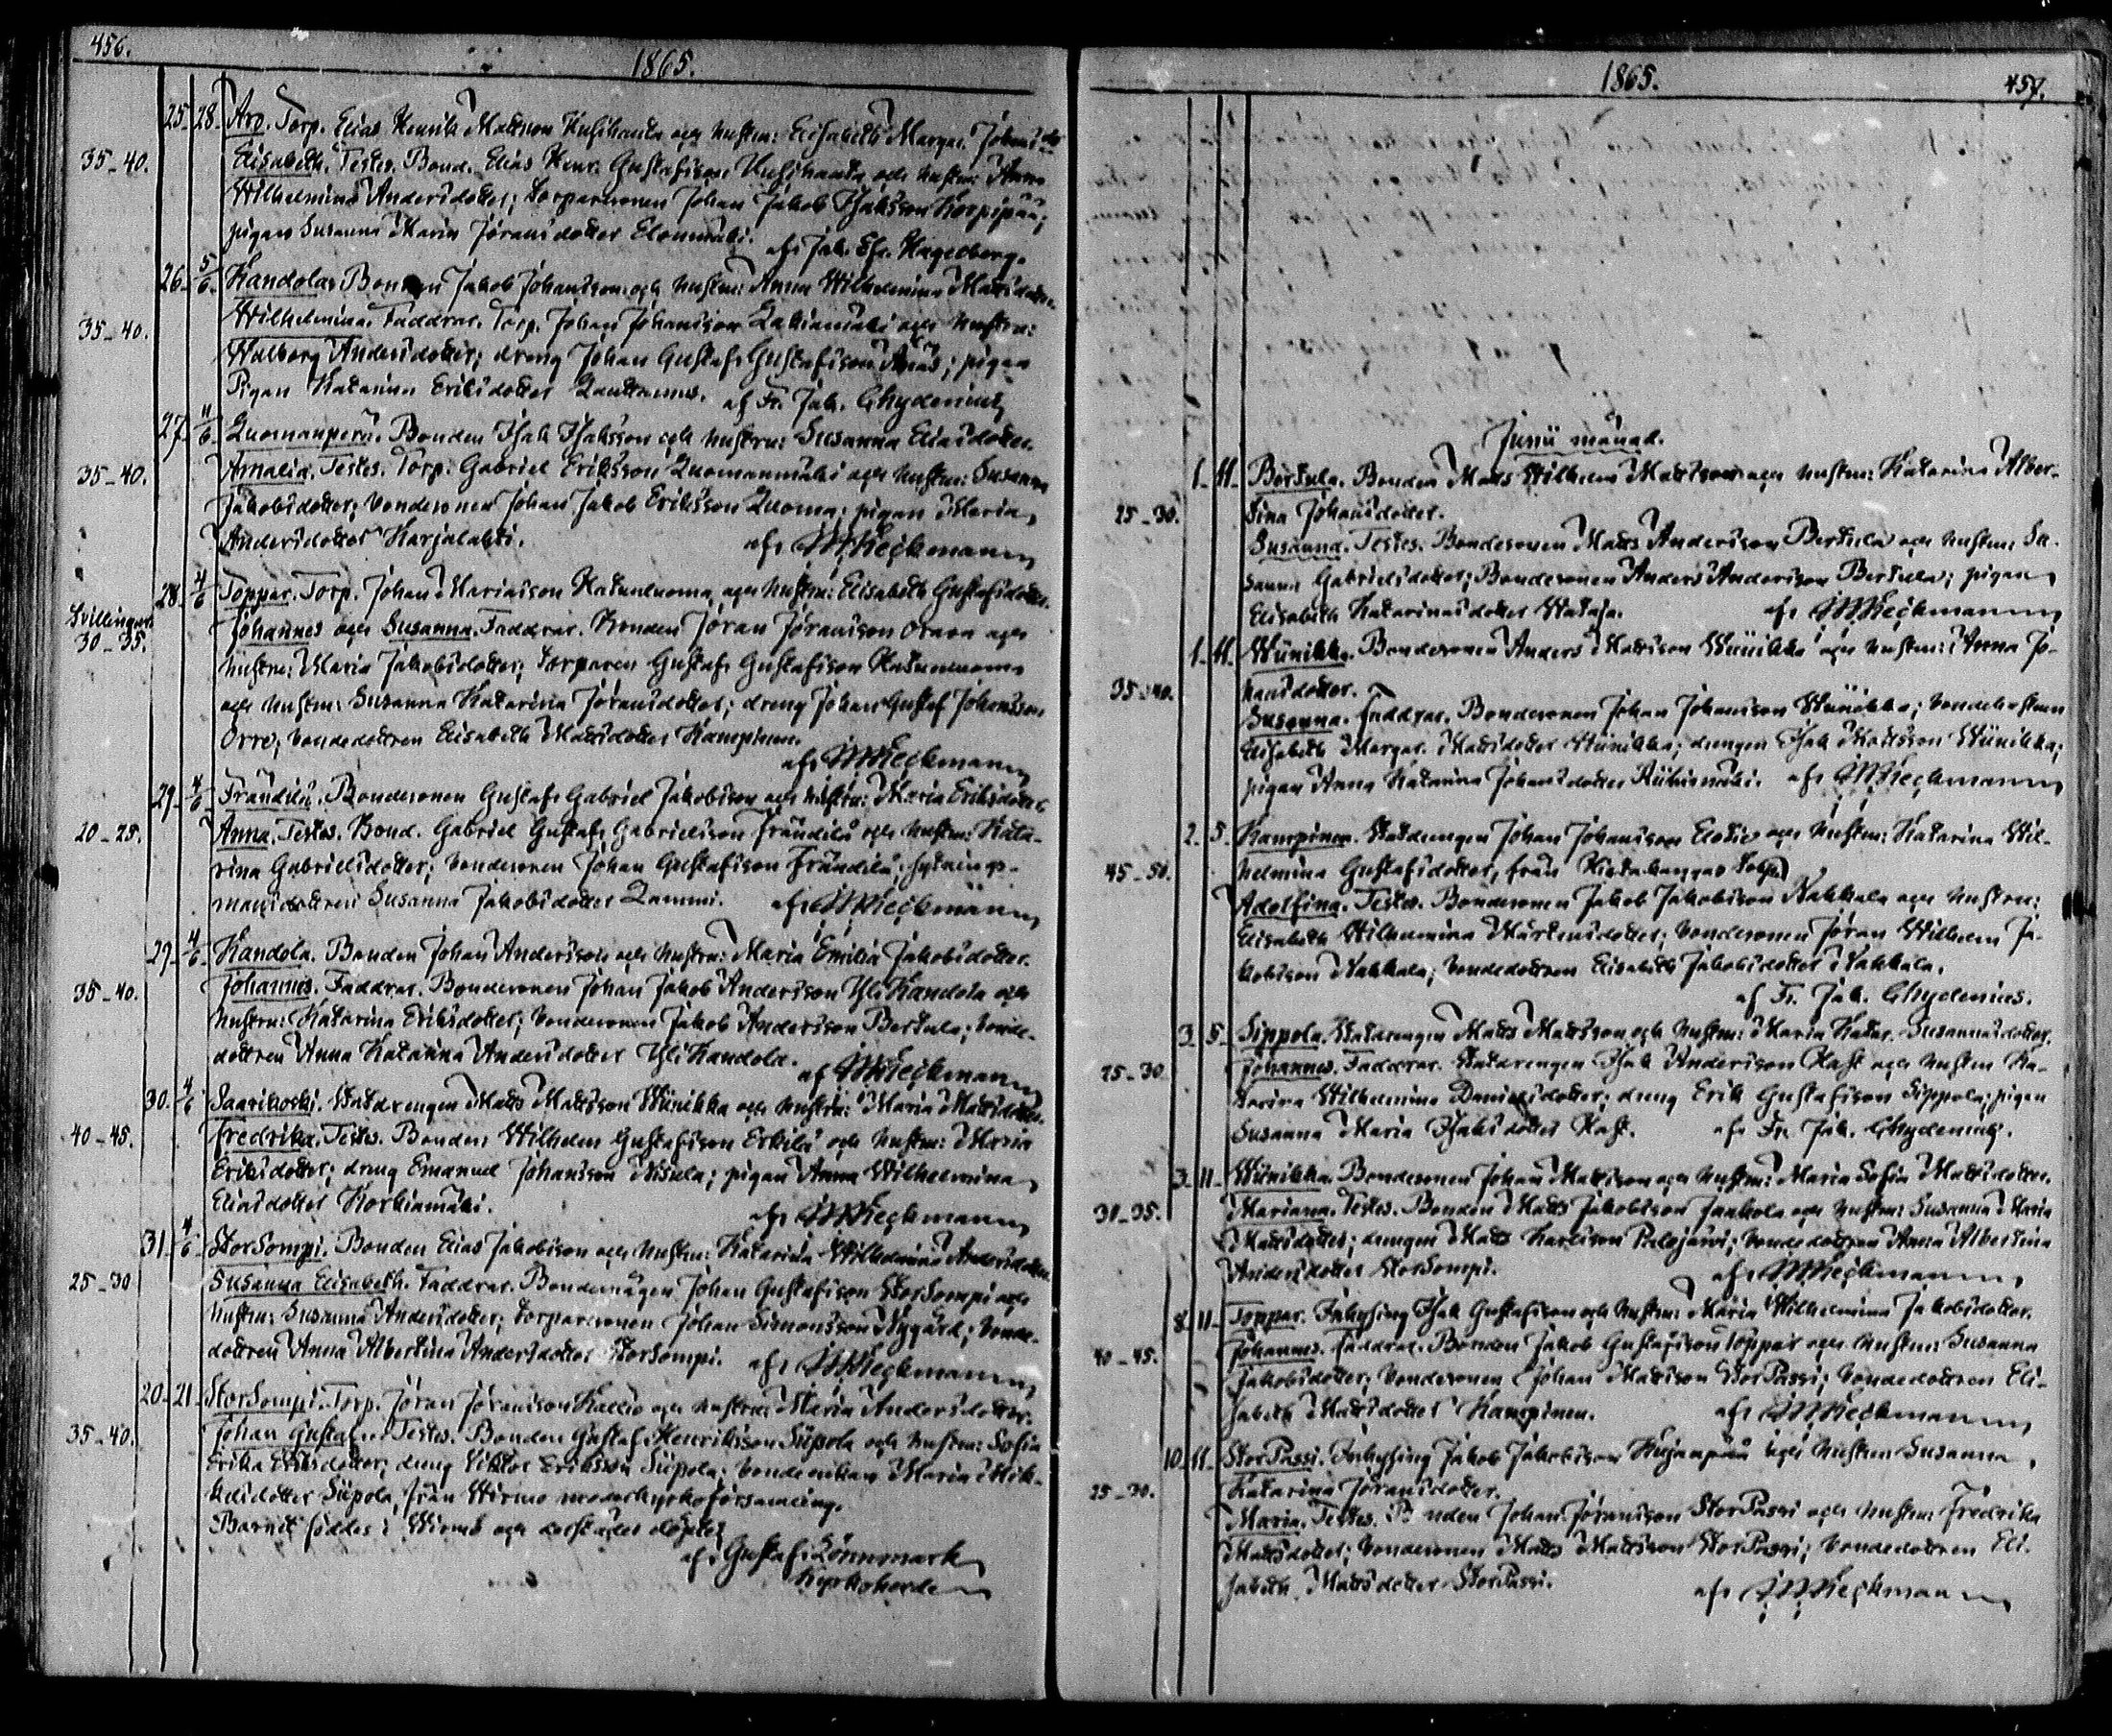 456.
1865.
25 28. Arp. Torp. Elias Henrik Mattsson och hustru: Elisabeth Margar. Johansd:r
35-40. Elisabeth. Testes. Bond. Elias Henr. Gustafsson och hustru: Anna
Wilhelmina Andersdotter; torparesonen Johan Jakob Isaksson Korpipää;
pigan Susanna Maria Jöransdotter Elomäki.
af Jak. Hagelberg.
26. 5/6. Kandola. Bonden Jakob Johansson och hustru: Anna Wilhelmina Mattsdotter.
35-40. Wilhelmina. Faddrar. Torp. Johan Johansson och hustru:
Walborg Andersdotter; dreng Johan Gustaf Gustafsson; pigan
Pigan Katarina Eriksdotter
af Fr. Jak. Chydenius
27. 11/6. Luomanperä. Bonden Isak Isaksson och hustru: Susanna Eliasdotter.
35-40. Amalia. Testes. Torp. Gabriel Eriksson Luomanmäki och hustru: Susanna
Jakobsdotter; bondesonen Johan Jakob Eriksson Luoma; pigan Maria
Andersdotter Karjalahti.
af Heckmann
28. 4/6 Toppar. Torp. Johan Mariasson Katunluoma och hustru: Elisabeth Gustafsdotter.
Tvillingar
30-35. Johannes och Susanna. Faddrar. Bonden Jöran Jöransson och
hustru: Maria Jakobsdotter; torparen Gustaf Gustafsson Katunluoma
och hustru: Susanna Katarina Jöransdotter; dreng Johan Gustaf Johansson
Orre; bondedottren Elisabeth Mattsdotter Kampinen.
af Heckmann
29. 4/6 Frändilä. Bondesonen Gustaf Gabriel Jakobsson och hustru: Maria Eriksdotter
20-25. Anna. Testes. Bond. Gabriel Gustaf Gabrielsson Frändilä och hustru: Kata-
rina Gabrielsdotter; bondesonen Johan Gustafsson Frändilä; sytnings-
mansdottren Susanna Jakobsdotter Lammi.
af Heckmann
29. 4/6 Kandola. Bonden Johan Andersson och hustru: Maria Emilia Jakobsdotter.
35-40. Johannes. Faddrar. Bondesonen Johan Jakob Andersson Yli Kandola och
hustru: Katarina Eriksdotter; bondesonen Jakob Andersson Bertula; bonde-
dottren Anna Katarina Andersdotter Yli Kandola.
af Heckmann
30. 4/6 Saarikoski. Statdrengen Matts Mattsson Wiinikka och hustru: Maria Mattsdotter.
40-45. Fredrika. Testes. Bonden Wilhelm Gustafsson Erkilä och hustru: Maria
Eriksdotter; dreng Emanuel Johansson Nisula; pigan Anna Wilhelmina
Eliasdotter Korkiamäki.
af Heckmann
31. 4/6 StorSompi. Bonden Elias Jakobsson och hustru: Katarina Wilhelmina Andersdotter
25-30 Susanna Elisabeth. Faddrar. Bondemågen Johan Gustafsson StorSompi och
hustru: Susanna Andersdotter; torparesonen Johan Simonsson Nygård; bonde-
dottren Anna Albertina Andersdotter StorSompi.
af Heckmann
20. 21. StorSompi. Torp. Jöran Jöransson Kallio och hustru: Maria Andersdotter.
35-40. Johan Gustaf. Testes. Bonden Gustaf Henriksson Siipola och hustru: Sofia
Erika Eriksdotter; dreng Viktor Eriksson Siipola; Maria Mik-
kelsdotter Siipola, från Wirmo moderkyrkoförsamling.
Barnet föddes i Wirmo och derstädes döptes
af Gustaf Lönnmark
Kyrkoherde
1865.
457.
Junii månad.
1. 11. Bertula. Bonden Matts Wilhelm Mattsson och hustru: Katarina Alber-
25-30. tina Johansdotter.
Susanna. Testes. Bondesonen Matts Andersson Bertula och hustru: Su-
sanna Gabrielsdotter; Bondesonen Anders Andersson Bertula; pigan
Elisabeth Katarinasdotter Kataja.
af Heckmann
1. 11. Wiinikka. Bondesonen Anders Mattsson Wiinikka och hustru: Anna Jo-
35-40. hansdotter.
Susanna. Faddrar. Bondesonen Johan Johansson Wiinikka; bondehustrun
Elisabeth Margar. Mattsdotter Wiinikka; drengen Isak Mattsson Wiinikka;
pigan Anna Katarina Johansdotter Riihimäki.
af Heckmann
2. 5. Kampinen. Statdrengen Johan Johansson och hustru: Katarina Wil-
45-50. helmina Gustafsdotter, från
Adolfina. Testes. Bondesonen Jakob Jakobsson Nakkala och hustru:
Elisabeth Wilhelmina Mårtensdotter; bondesonen Jöran Wilhelm Ja-
kobsson Nakkala; bondedottren Elisabeth Jakobsdotter Nakkala.
af Fr. Jak. Chydenius.
3. 5. Sippola. Statdrengen Matts Mattsson och hustru: Maria Katar. Susannasdotter.
25-30 Johannes. Faddrar. Statdrengen Isak Andersson Kast och hustru Ka-
tarina Wilhelmina Danielsdotter; dreng Erik Gustafsson Sippola; pigan
Susanna Maria Isaksdotter Kast.
af Fr. Jak. Chydenius.
3. 11. Wiinikka. Bondesonen Johan Mattsson och hustru: Maria Sofia Mattsdotter.
30-35. Mariana. Testes. Bonden Matts Jakobsson Jaakola och hustru: Susanna Maria
Mattsdotter; drengen Matts Karlsson Palojärvi; bondedottren Anna Albertina
Andersdotter StorSompi.
af Heckmann
8. 11. Toppar. Inhysing Isak Gustafsson och hustru: Maria Wilhelmina Jakobsdotter.
40-45. Johannes. Faddrar. Bonden Jakob Gustafsson Toppar och hustru: Susanna
Jakobsdotter; bondesonen Johan Mattsson StorPassi; bondedottren Eli-
sabeth Mattsdotter Kampinen.
af Heckmann
10. 11. StorPassi. Inhysing Jakob Jakobsson Kujanpää och hustru: Susanna
25-30. Katarina Jöransdotter.
Maria. Testes. Bonden Johan Jöransson StorPassi och hustru: Fredrika
Mattsdotter; bondesonen Matts Mattsson StorPassi; bondedottren Eli-
sabeth Mattsdotter StorPassi.
af Heckmann